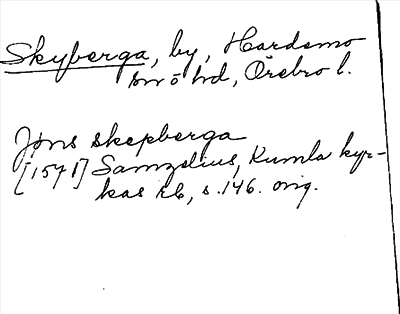 Skyberga, by, Hardemo
sn ö hd, Örebro l.
Jöns skepberga
[1571] Samzelius, Kumla kyr-
kas rb, s. 146. orig.